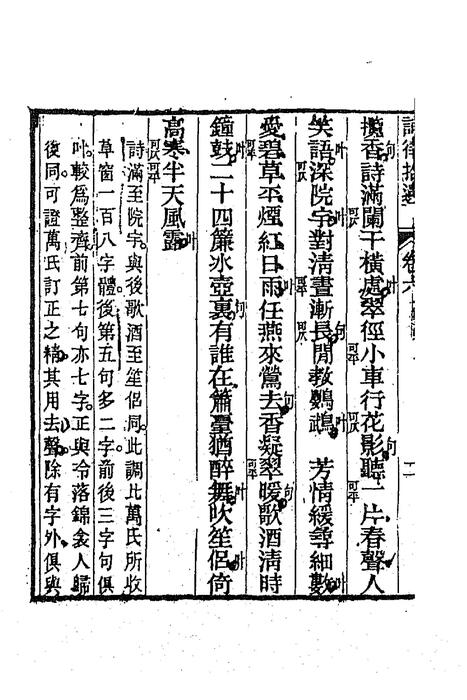 詞律拾遺 卷六
攬香詩滿闌干橫處翠徑小車行花影聽一片春聲人
笑語深院宇對清晝漸長閒教鸚鵡 芳情緩尋細數
愛碧草平煙紅日雨任燕來鶯去香凝翠暖歌酒清時
鐘鼓二十四簾冰壺裏有誰在簫臺猶醉舞吹笙侶倚
高寒半天風露
詩滿至院宇與後歌酒至笙侶同此調比萬氏所收
草窗一百八字體後第五句多二字前後三字句俱
叶較爲整齊前第七句亦七字正與冷落錦衾人歸
後同可證萬氏訂正之精其用去聲除有字外俱與